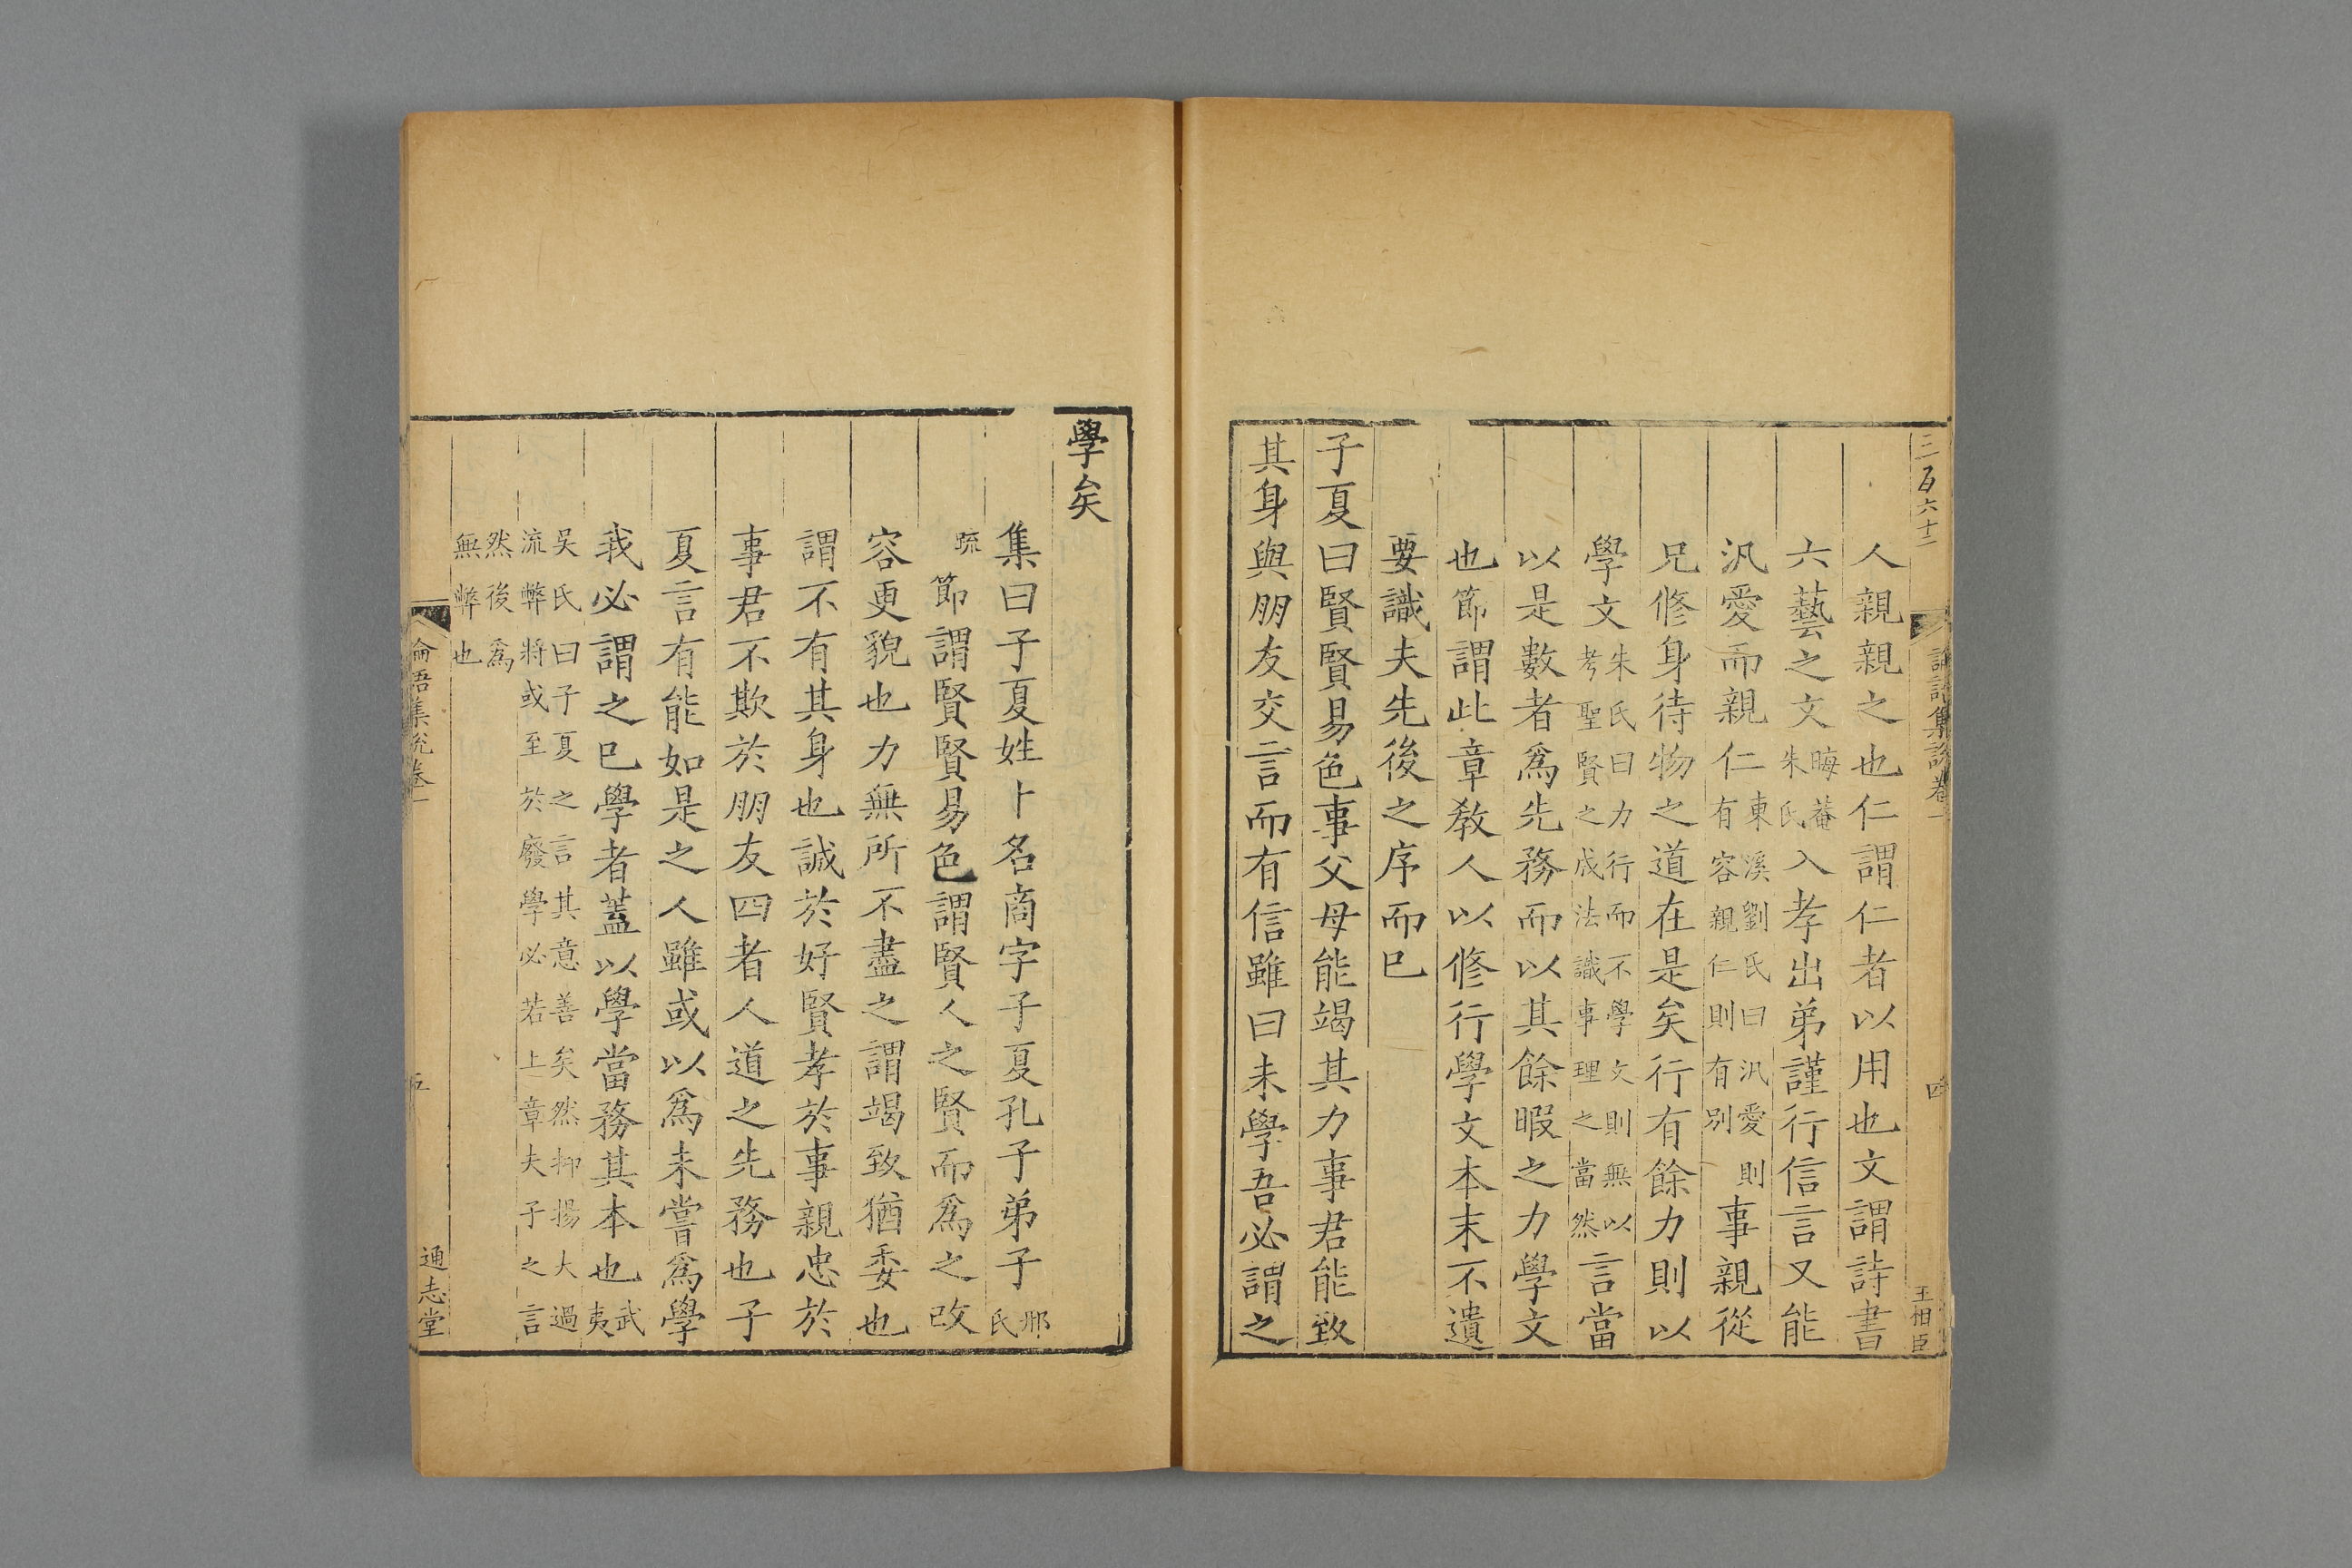 三百六十二
論語集說卷一
四
王相臣
人親親之也仁謂仁者以用也文謂詩書
六藝之文晦菴朱氏入孝出弟謹行信言又能
汎愛而親仁東溪劉氏曰汎愛則有容親仁則有別事親從
兄修身待物之道在是矣行有餘力則以
學文朱氏曰力行而不學文則無以考聖賢之成法識事理之當然言當
以是數者爲先務而以其餘暇之力學文
也節謂此章教人以修行學文本末不遺
要識夫先後之序而已
子夏曰賢賢易色事父母能竭其力事君能致
其身與朋友交言而有信雖曰未學吾必謂之
學矣
集曰子夏姓卜名商字子夏孔子弟子邢氏
疏節謂賢賢易色謂賢人之賢而爲之改
容更貌也力無所不盡之謂竭致猶委也
謂不有其身也誠於好賢孝於事親忠於
事君不欺於朋友四者人道之先務也子
夏言有能如是之人雖或以爲未嘗爲學
我必謂之已學者蓋以學當務其本也武夷
吳氏曰子夏之言其意善矣然抑揚大過
流弊將或至於廢學必若上章夫子之言
然後爲
無弊也
論語集說卷一
五
通志堂